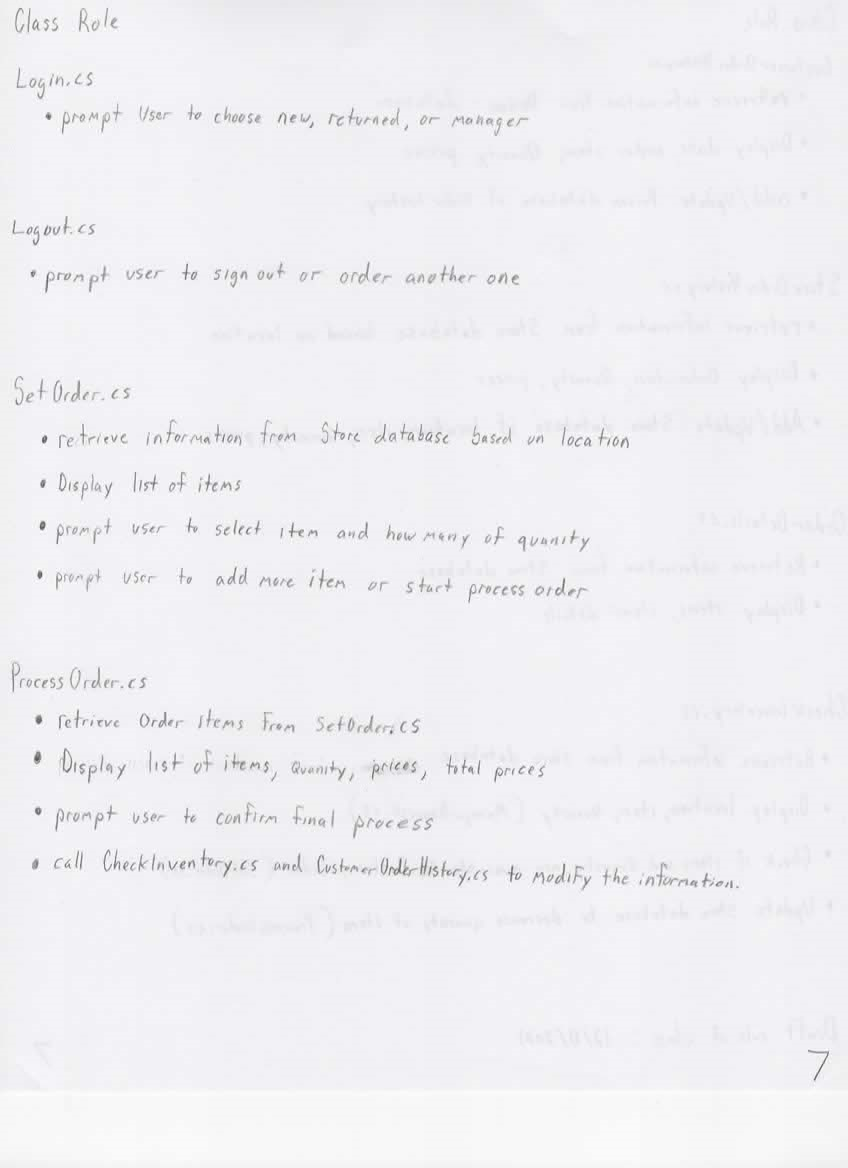 Class Role
Login.cs
• prompt User to choose new, returned, or manager
Logout.cs
• prompt user to sign out or order another one
SetOrder.cs
• retrieve information from Store database based on location
• Display list of items
• prompt user to select item and how many of quanity
• prompt user to add more item or start process order
ProcessOrder.cs
• retrieve Order Items From SetOrder.cs
• Display list of items, Quanity, prices, total prices
• prompt user to confirm final process
• call CheckInventory.cs and CustomerOrderHistory.cs to modify the information.
7